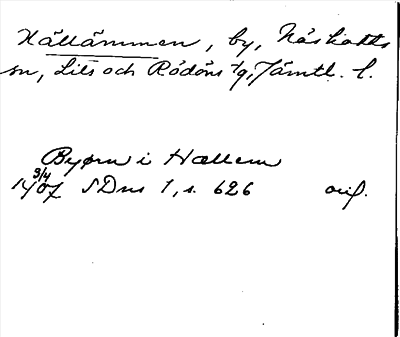 Hällåmmen, by, Näskotts
sn, Lits och Rödöns tg, Jämtl. l.
Byørn i Hællem
3/4
1407 SDns 1, s. 626 orig.